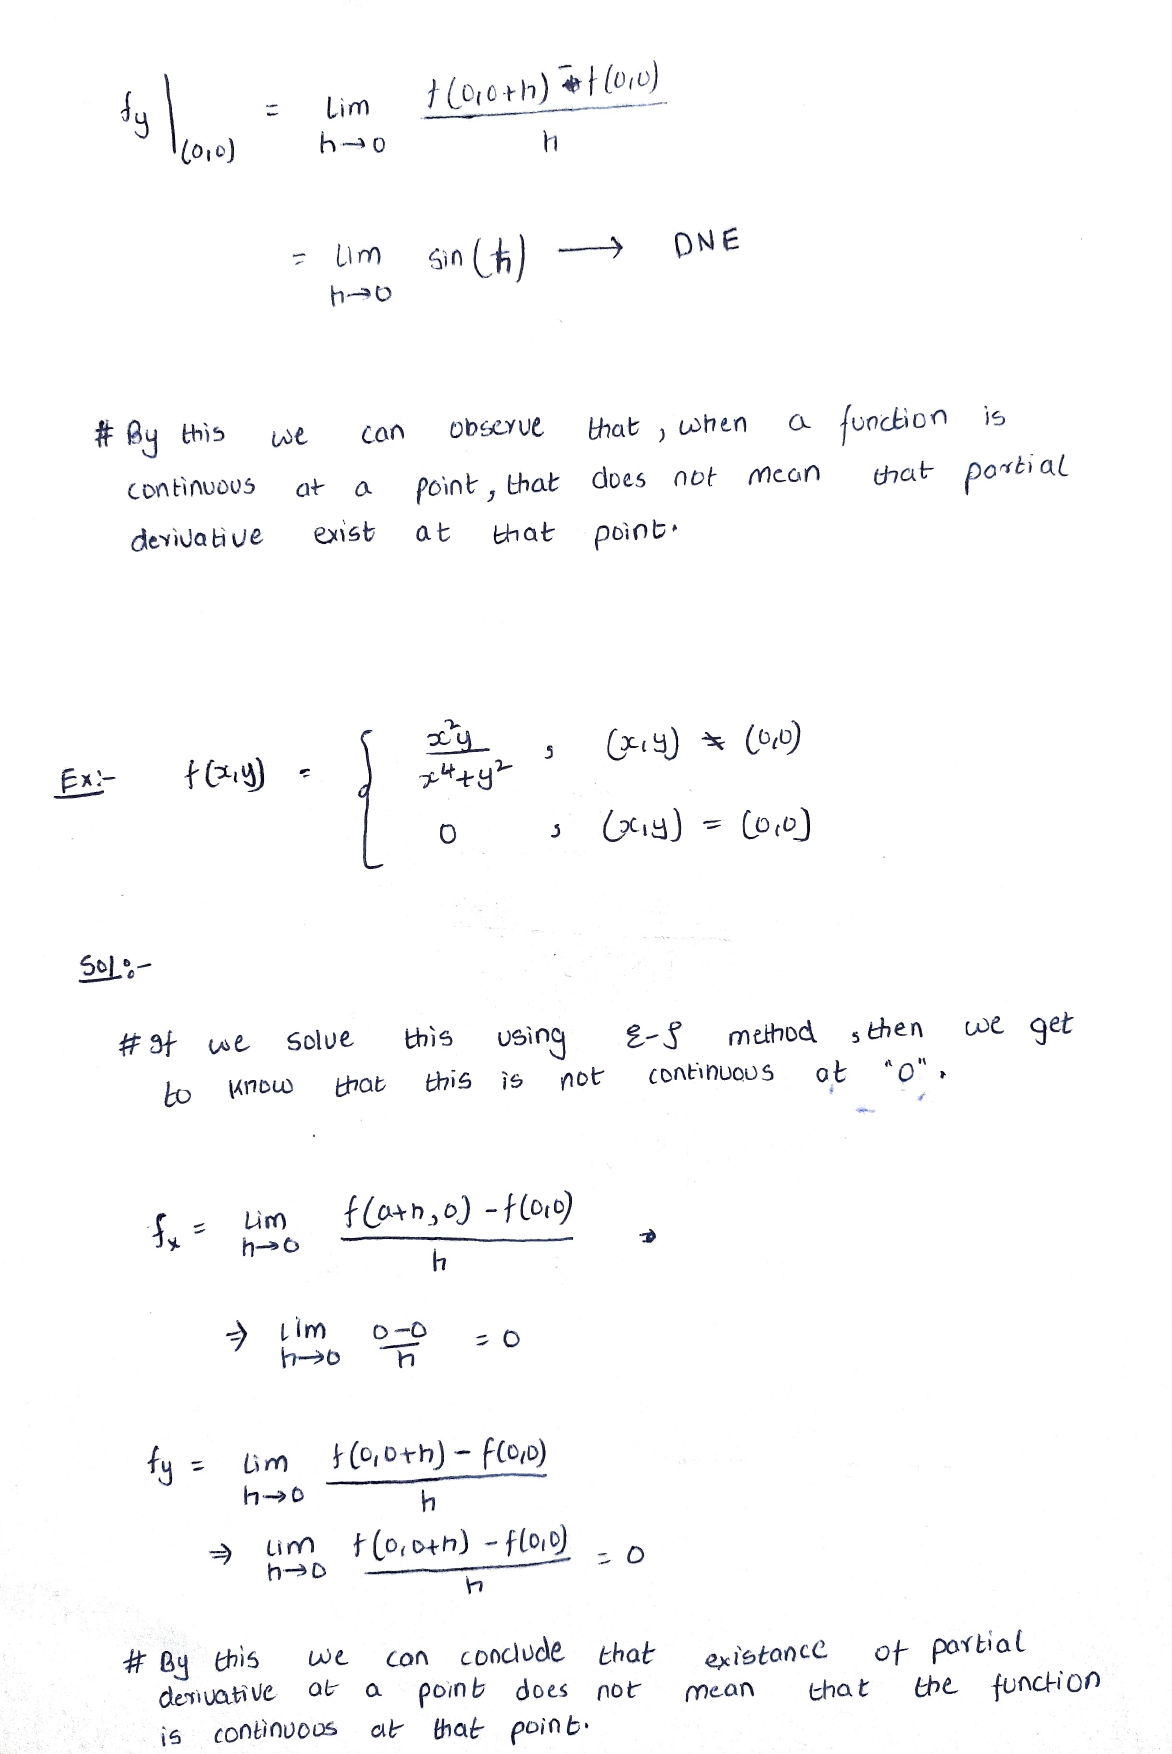 fy |(0,0) = Lim h→0 f(0,0+h) - f(0,0) / h
= Lim h→0 sin(1/h) → DNE
# By this we can observe that, when a function is
continuous at a point, that does not mean that partial
derivative exist at that point.
Ex:- f(x,y) = { x²y / x⁴+y² , (x,y) ≠ (0,0)
0 , (x,y) = (0,0)
Sol:-
# If we solve this using ε-δ method, then we get
to know that this is not continuous at "0".
fx = Lim h→0 f(a+h,0) - f(0,0) / h
⇒ Lim h→0 0-0 / h = 0
fy = Lim h→0 f(0,0+h) - f(0,0) / h
⇒ Lim h→0 f(0,0+h) - f(0,0) / h = 0
# By this we can conclude that existance of partial
derivative at a point does not mean that the function
is continuous at that point.